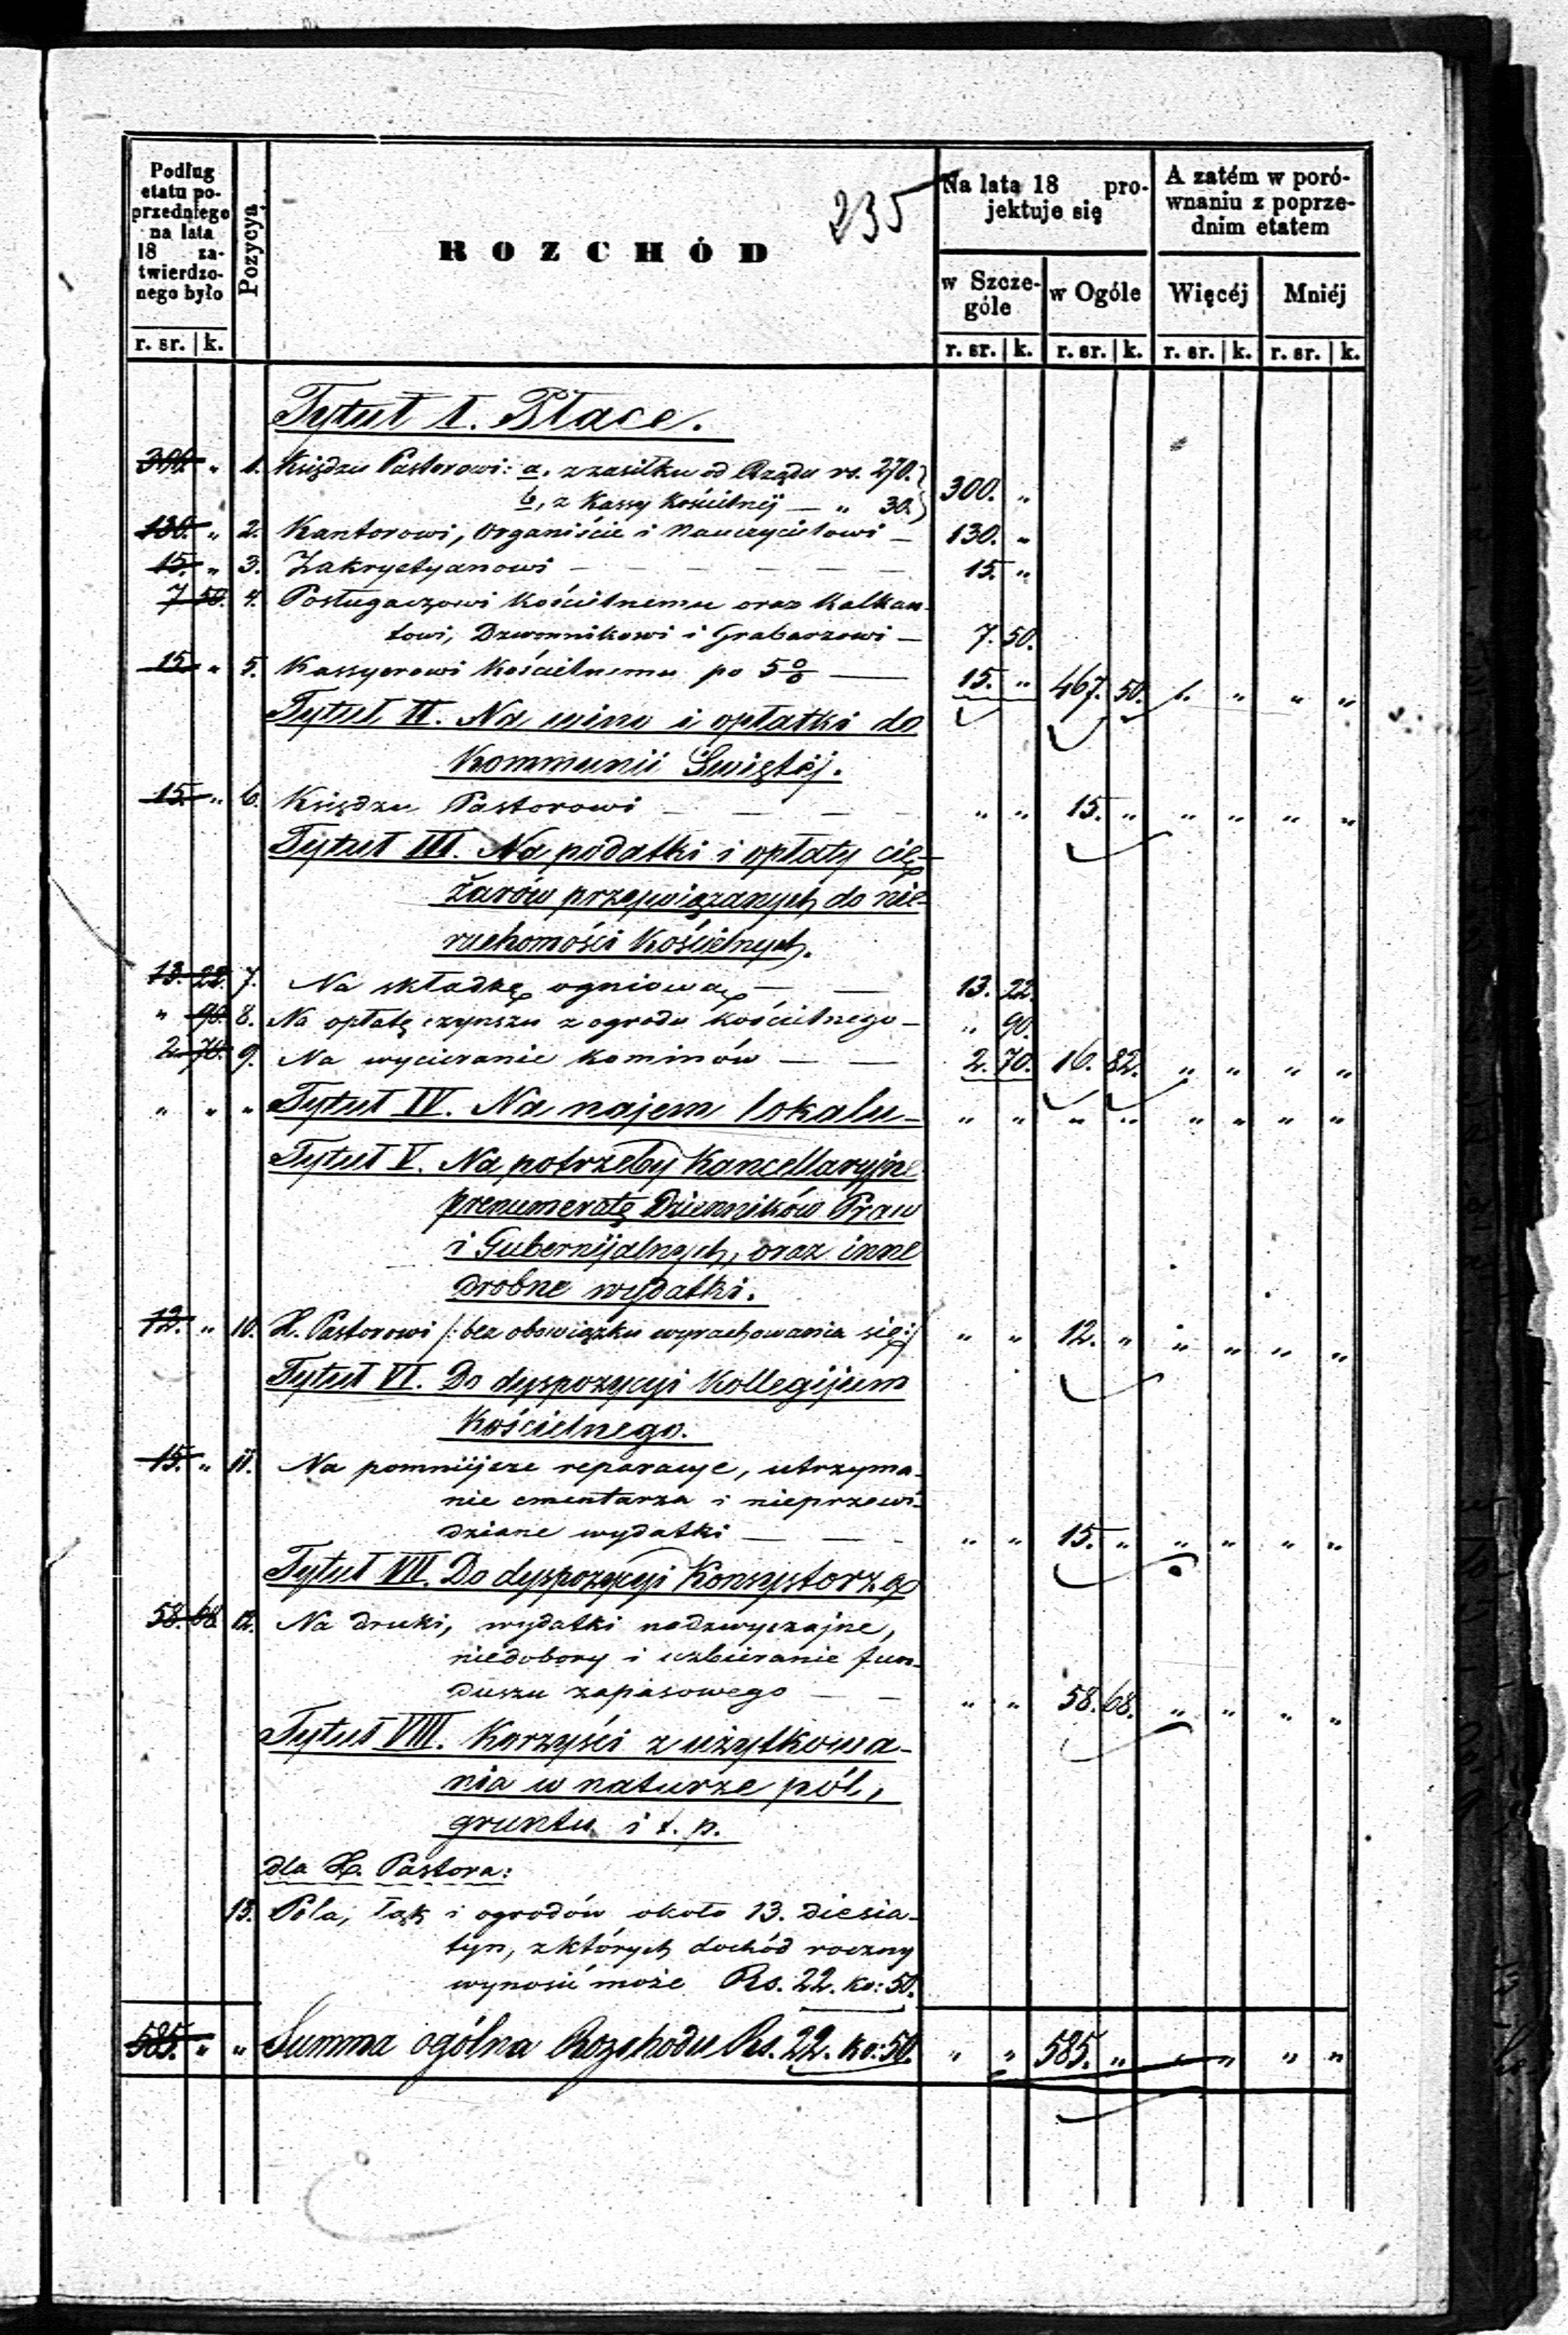 235
Podług etatu poprzedniego na lata 18 zatwierdzonego było
Pozycya
ROZCHÓD
Na lata 18 projektuje się
A zatém w porównaniu z poprzednim etatem
w Szczególe
w Ogóle
Więcéj
Mniéj
r. sr. k. r. sr. k. r. sr. k. r. sr. k. r. sr. k.
Tytuł I. Płace.
300. " 1. Księdzu Pastorowi: a, z zasiłku od Rządu rs. 270.
b, z Kassy Kościelnéj — " 30. 300. "
130. " 2. Kantorowi, Organiście i Nauczycielowi — 130. "
15. " 3. Zakrystyanowi — — — — — 15. "
7 50. 4. Posługaczowi Kościelnemu oraz Kalkan-
towi, Dzwonnikowi i Grabarzowi — 7. 50.
15. " 5. Kassyerowi Kościelnemu po 5% — 15. " 467. 50. " " " "
Tytuł II. Na wino i opłatki do
Kommunii Świętéj.
15. " 6. Księdzu Pastorowi — — — — " " 15. " " " " "
Tytuł III. Na podatki i opłaty cię-
żarów przywiązanych do nie-
ruchomości Kościelnych.
13. 22. 7. Na składkę ogniową — — 13. 22.
" 90. 8. Na opłatę czynszu z ogrodu Kościelnego — " 90.
2. 70. 9. Na wycieranie kominów — — 2. 70. 16. 82. " " " "
" " " Tytuł IV. Na najem lokalu — " " " " " " " "
Tytuł V. Na potrzeby Kancellaryjne
prenumeratę Dzienników Praw
i Gubernijalnych, oraz inne
drobne wydatki.
12. " 10. X. Pastorowi /: bez obowiązku wyrachowania się :/ " " 12. " " " " "
Tytuł VI. Do dyspozycyi Kollegijum
Kościelnego.
15. " 11. Na pomniejsze reparacye, utrzyma-
nie cmentarza i nieprzewi-
dziane wydatki — — — " " 15. " " " " "
Tytuł VII. Do dyspozycyi Konsystorza
58. 68. 12. Na druki, wydatki nadzwyczajne,
niedobory i uzbieranie fun-
duszu zapasowego — — " " 58. 68. " " " "
Tytuł VIII. Korzyści z użytkowa-
nia w naturze pól,
gruntu i t. p.
dla X. Pastora:
13. Pola, łąk i ogrodów około 13. diesia-
tyn, z których dochód roczny
wynosić może Rs. 22. ko: 50.
585. " " Summa ogólna Rozchodu Rs. 22. ko: 50. " " 585. " " " " "